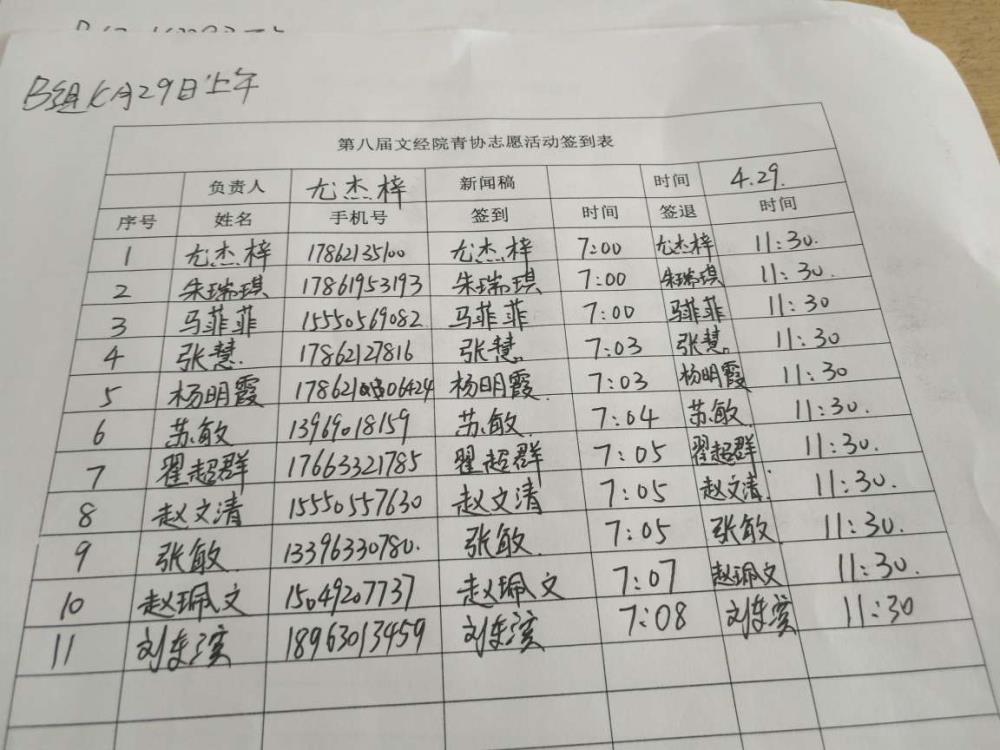 B组 4月29日上午
第八届文经院青协志愿活动签到表
负责人 尤杰梓 新闻稿 时间 4.29.
序号 姓名 手机号 签到 时间 签退 时间
1 尤杰梓 17862135100 尤杰梓 7:00 尤杰梓 11:30.
2 朱瑞琪 17861953193 朱瑞琪 7:00 朱瑞琪 11:30.
3 马菲菲 15550569082 马菲菲 7:00 马菲菲 11:30
4 张慧. 17862127816 张慧. 7:03 张慧. 11:30
5 杨明霞 178621 06424 杨明霞 7:03 杨明霞 11:30
6 苏敏 13969018159 苏敏 7:04 苏敏. 11:30.
7 翟超群 17663321785 翟超群 7:05 翟超群 11:30.
8 赵文清 15550557630 赵文清 7:05 赵文清 11:30.
9 张敏. 13396330780. 张敏. 7:05 张敏 11:30.
10 赵珮文 15049207737 赵珮文 7:07 赵珮文 11:30.
11 刘 18963013459 刘 7:08 刘 11:30